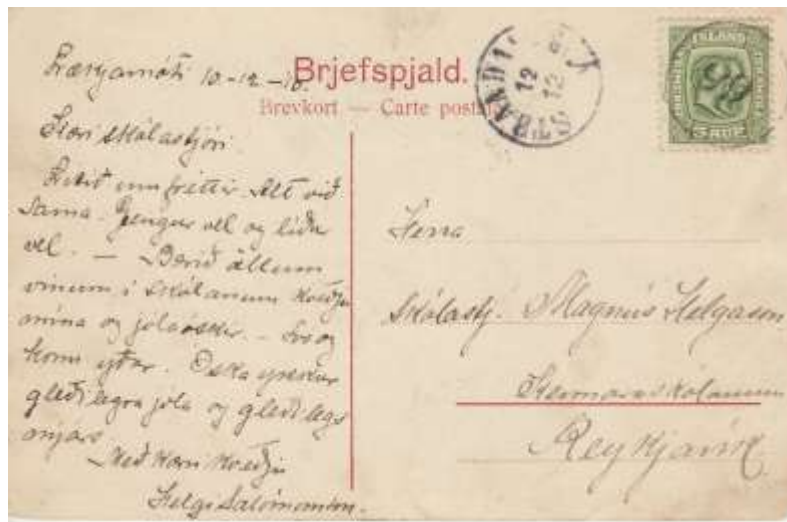 Brjefspjald.
Brevkort — Carte postale
10-12-10.
Kæri skólastjóri.
Lítið um fréttir. Alt við
sama. Gengur vel og líður
vel. — Berið öllum
vinum í skólanum kveðju
mína og jólaóskir. — Svo og
konu yðar. Óska ykkur
gleðilegra jóla og gleðilegs
nýjárs
Með kærri kveðju
Helgi Salómonsson.
ÍSLAND
5 AUR
STRAND
12
12
Herra
Skólastj. Magnús Helgason
Kennaraskólanum
Reykjavík